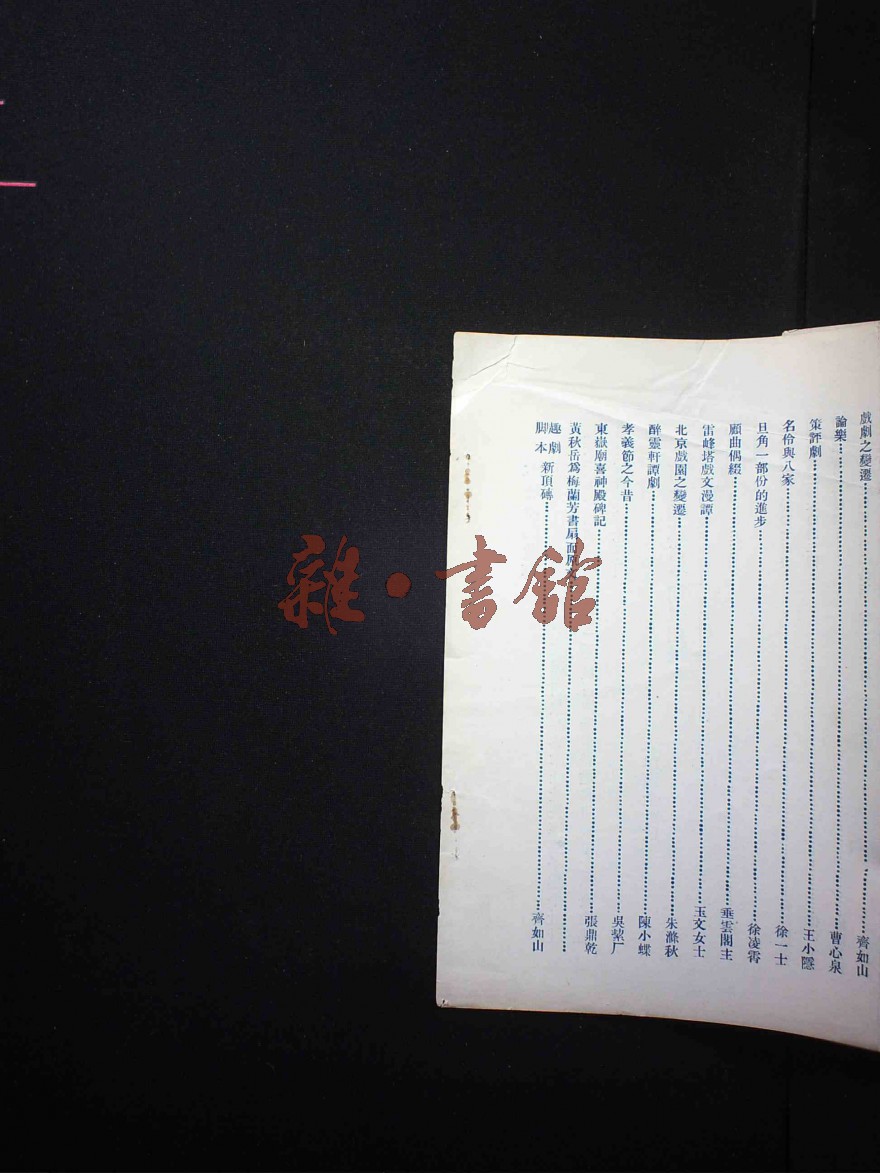 戲劇之變遷……齊如山
論樂……曹心泉
策評劇……王小隱
名伶與八家……徐一士
旦角一部份的進步……徐凌霄
顧曲偶綴……垂雲閣主
雷峰塔戲文漫譚……玉文女士
北京戲園之變遷……朱滌秋
醉靈軒譚劇……陳小蝶
孝義節之今昔……吳絜厂
東嶽廟喜神殿碑記……張鼎乾
黃秋岳為梅蘭芳書扇面原文……
趣劇脚本 新頂磚……齊如山
雜·書館